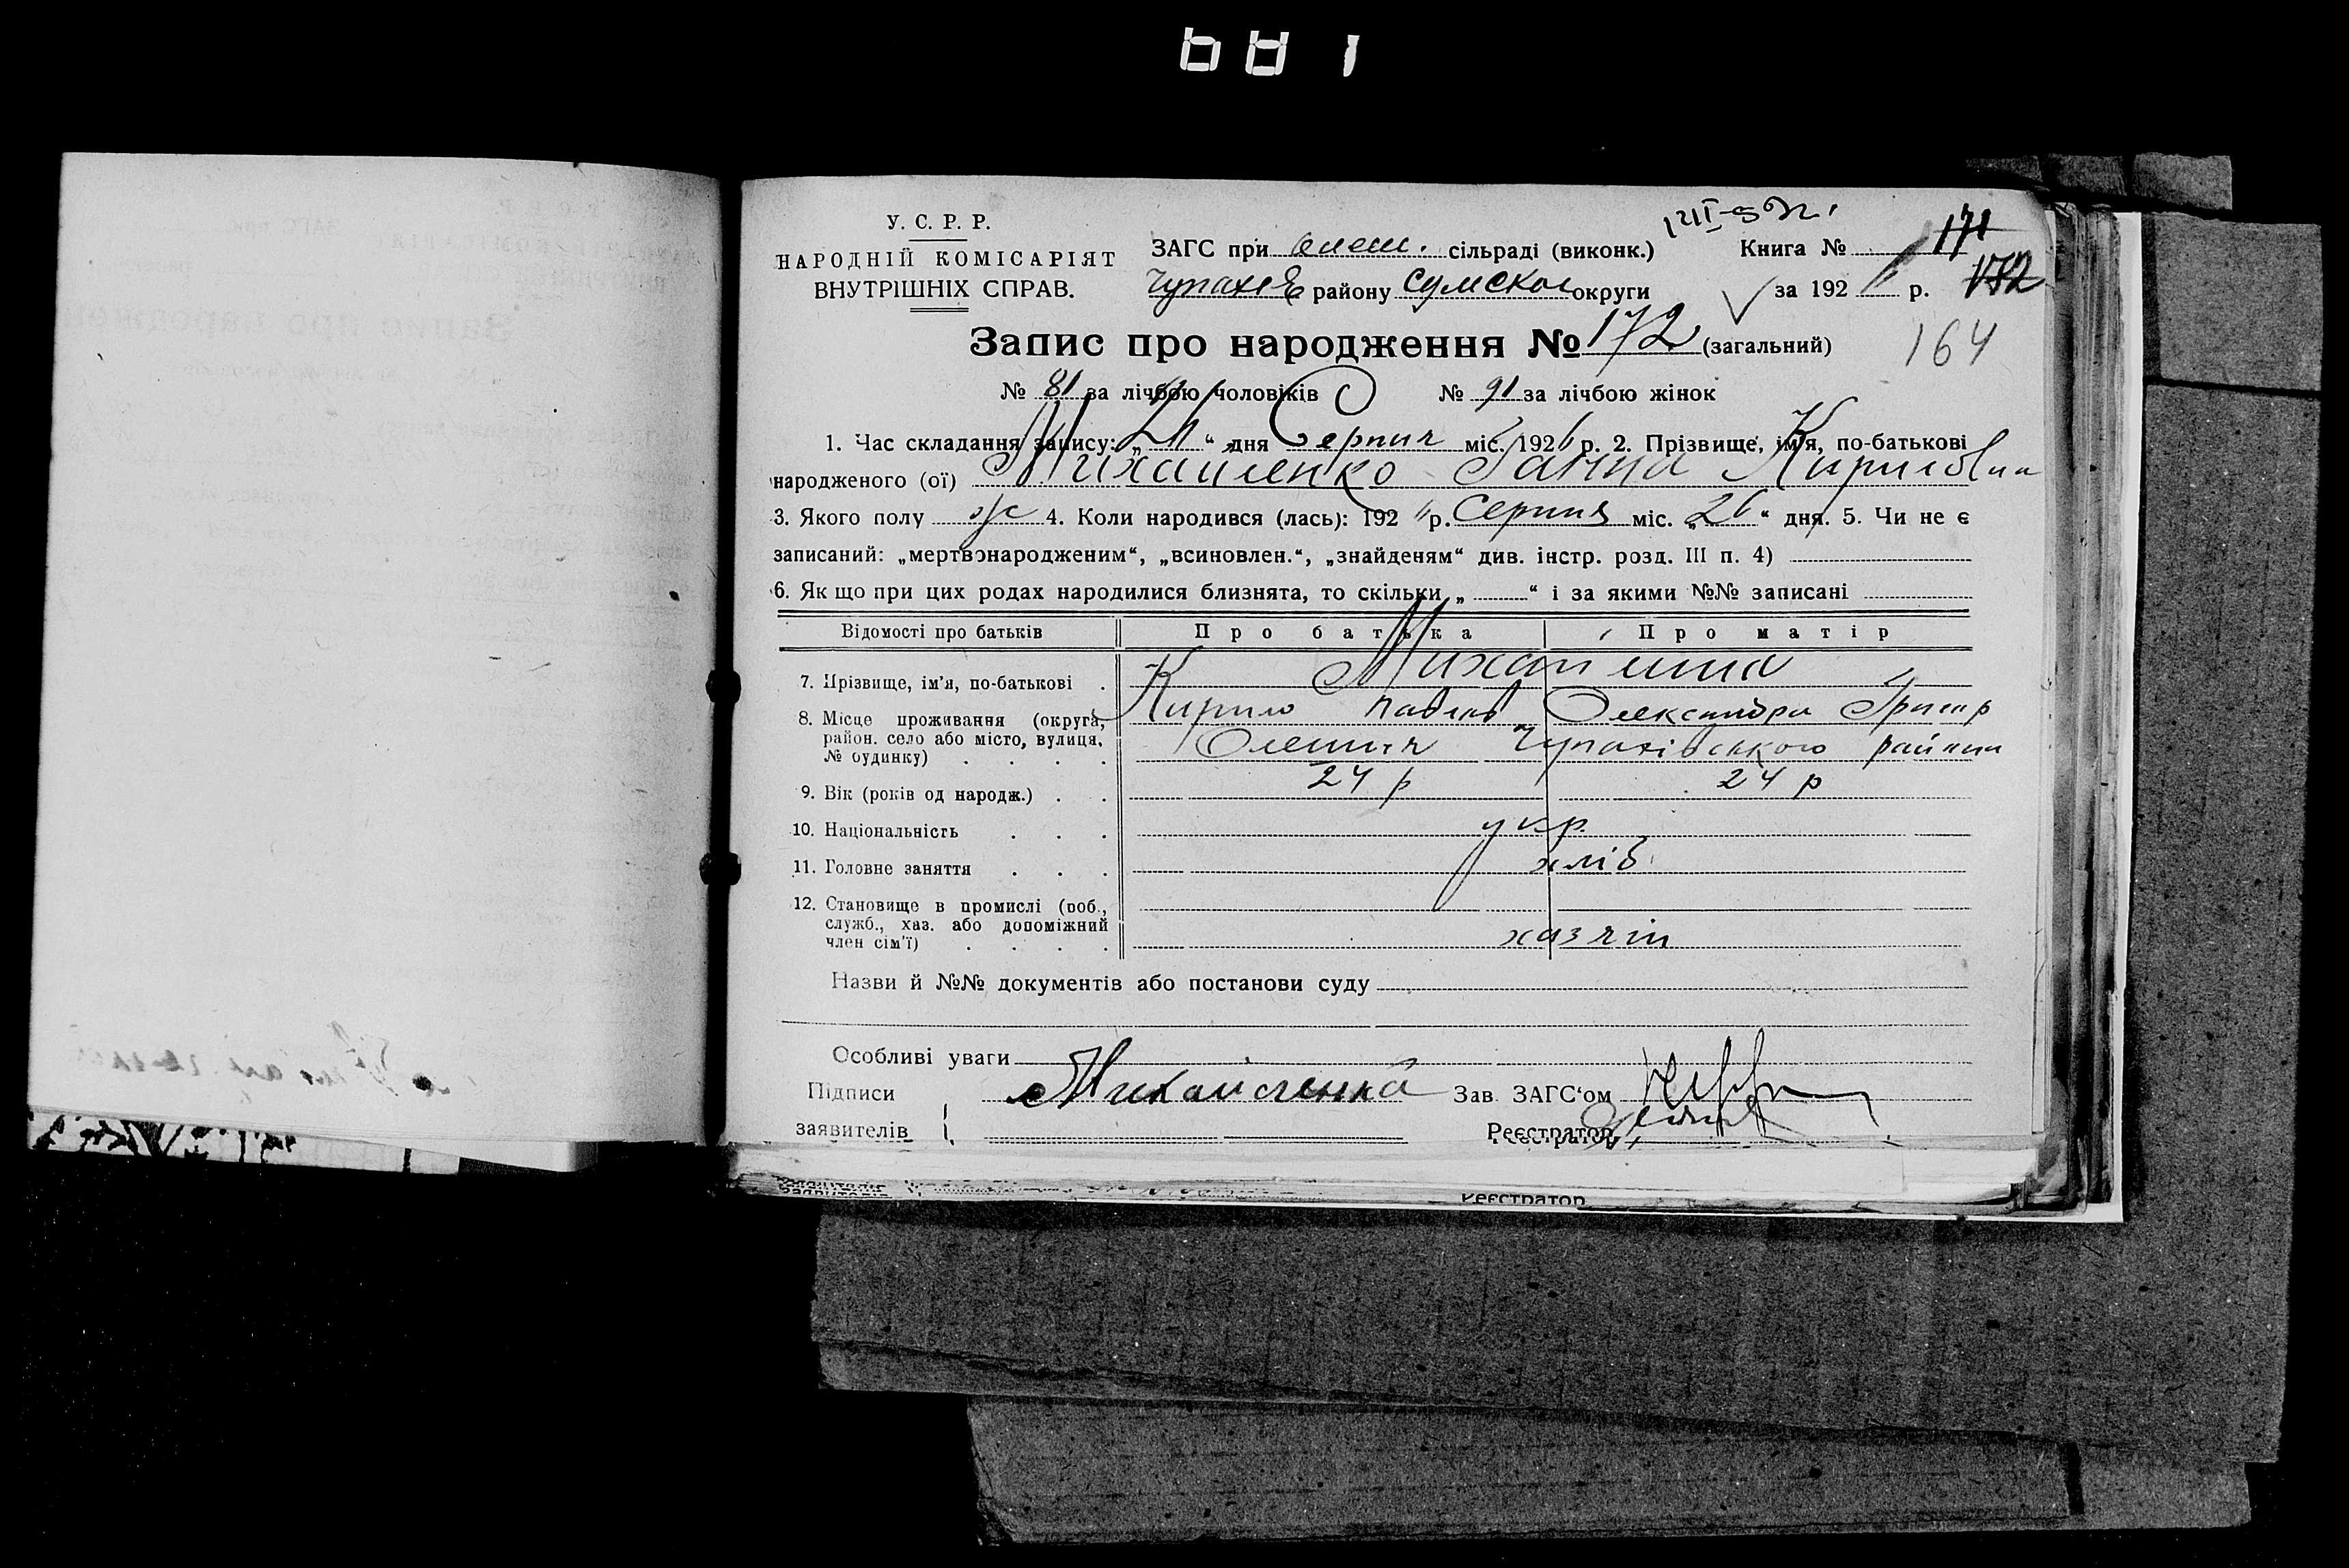 У. С. Р. Р.
НАРОДНІЙ КОМІСАРІЯТ
ВНУТРІШНІХ СПРАВ.
ЗАГС при олеш. сільраді (виконк.)
Чупахів району Сумской округи
Книга № 171
за 1926 р. 172
164
Запис про народження № 172 (загальний)
№ 81 за лічбою чоловіків № 91 за лічбою жінок
1. Час складання запису: „ “ дня Серпня міс. 1926 р. 2. Прізвище, ім'я, по-батькові
народженого (ої) Михайленко Ганна Кирилівна
3. Якого полу ж 4. Коли народився (лась): 192 р. Серпня міс. „26“ дня. 5. Чи не є
записаний: „мертвонародженим“, „всиновлен.“, „знайденям“ див. інстр. розд. III п. 4)
6. Як що при цих родах народилися близнята, то скільки „ “ і за якими №№ записані
Відомості про батьків Про батька Про матір
7. Прізвище, ім'я, по-батькові
Кирило Павлов Олександра Григор
8. Місце проживання (округа, район. село або місто, вулиця, № будинку) Олешня Чупахівського района
9. Вік (років од народж.) 24 р 24 р
10. Національність укр.
11. Головне заняття хліб
12. Становище в промислі (роб., служб., хаз. або допоміжний член сім'ї) хазяїн
Назви й №№ документів або постанови суду
Особливі уваги
Підписи Михайленко Зав. ЗАГС'ом
заявителів Реєстратор
Реєстратор